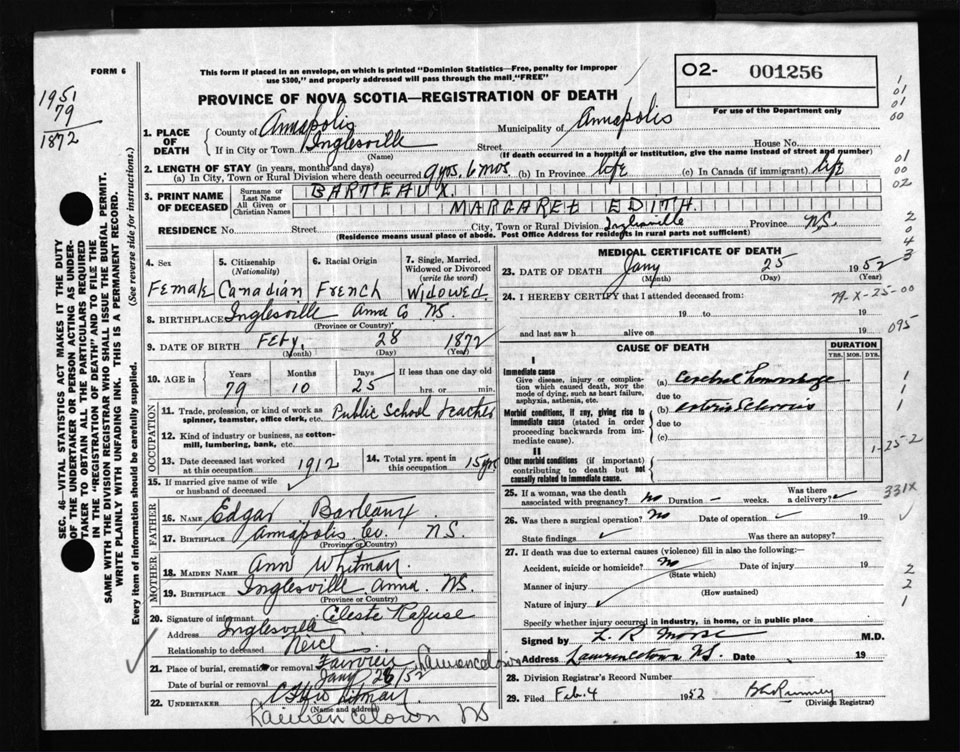 FORM 6
This form if placed in an envelope, on which is printed "Dominion Statistics—Free, penalty for improper
use $300," and properly addressed will pass through the mail "FREE"
O2- 001256
For use of the Department only
PROVINCE OF NOVA SCOTIA—REGISTRATION OF DEATH
1951
79
1872
1. PLACE OF DEATH
County of Annapolis Municipality of Annapolis
If in City or Town Inglesville Street House No.
(Name) (If death occurred in a hospital or institution, give the name instead of street and number)
2. LENGTH OF STAY (in years, months and days)
(a) In City, Town or Rural Division where death occurred 9 yrs. 6 mos. (b) In Province life (c) In Canada (if immigrant) life
3. PRINT NAME OF DECEASED
Surname or Last Name BARTEAUX.
All Given or Christian Names MARGARET EDITH.
RESIDENCE No. Street City, Town or Rural Division Inglesville Province N.S.
(Residence means usual place of abode. Post Office Address for residents in rural parts not sufficient)
4. Sex
Female
5. Citizenship
(Nationality)
Canadian
6. Racial Origin
French
7. Single, Married,
Widowed or Divorced
(write the word)
Widowed.
8. BIRTHPLACE Inglesville Anna Co NS.
(Province or Country)
9. DATE OF BIRTH Feby. 28 1872
(Month) (Day) (Year)
10. AGE in Years Months Days If less than one day old
79 10 25 hrs. or min.
OCCUPATION
11. Trade, profession, or kind of work as
spinner, teamster, office clerk, etc. Public School Teacher
12. Kind of industry or business, as cotton-
mill, lumbering, bank, etc.
13. Date deceased last worked
at this occupation 1912
14. Total yrs. spent in
this occupation 15 yrs
15. If married give name of wife
or husband of deceased
FATHER
16. NAME Edgar Barteaux
17. BIRTHPLACE Annapolis Co. N.S.
(Province or Country)
MOTHER
18. MAIDEN NAME Ann Whitman
19. BIRTHPLACE Inglesville Anna. NS.
(Province or Country)
20. Signature of informant Celeste Rafuse
Address Inglesville
Relationship to deceased Neice
21. Place of burial, cremation or removal Fairview Lawrencetown
Date of burial or removal Jany 28/52
22. UNDERTAKER Whitman
(Name and address)
Lawrencetown NS
MEDICAL CERTIFICATE OF DEATH
23. DATE OF DEATH Jany 25 1952
(Month) (Day) (Year)
24. I HEREBY CERTIFY that I attended deceased from: 79-X-25-00
19 to 19
and last saw h alive on 19
CAUSE OF DEATH
DURATION
YRS. MOS. DYS.
I
Immediate cause
Give disease, injury or complica-
tion which caused death, NOT the
mode of dying, such as heart failure,
asphyxia, asthenia, etc.
(a) Cerebral hemorrhage
due to
Morbid conditions, if any, giving rise to
immediate cause (stated in order
proceeding backwards from im-
mediate cause).
(b) arterio Sclerosis
due to
(c)
II
Other morbid conditions (if important)
contributing to death but not
causally related to immediate cause.
25. If a woman, was the death
associated with pregnancy? No Duration – weeks. Was there
a delivery?
26. Was there a surgical operation? No Date of operation 19
State findings Was there an autopsy?
27. If death was due to external causes (violence) fill in also the following:—
Accident, suicide or homicide? No Date of injury 19
(State which)
Manner of injury
(How sustained)
Nature of injury
Specify whether injury occurred in industry, in home, or in public place
Signed by L. R. Morse M.D.
Address Lawrencetown N.S. Date 19
28. Division Registrar's Record Number
29. Filed Feb. 4 1952
(Division Registrar)
SEC. 46—VITAL STATISTICS ACT MAKES IT THE DUTY
OF THE UNDERTAKER OR PERSON ACTING AS UNDER-
TAKER TO OBTAIN ALL THE PARTICULARS REQUIRED
IN THE "REGISTRATION OF DEATH" AND TO FILE THE
SAME WITH THE DIVISION REGISTRAR WHO SHALL ISSUE THE BURIAL PERMIT.
WRITE PLAINLY WITH UNFADING INK. THIS IS A PERMANENT RECORD.
Every item of information should be carefully supplied. (See reverse side for instructions.)
1
01
01
00
01
00
02
2
0
4
3
095
1
1
1
1-25-2
331X
2
2
1